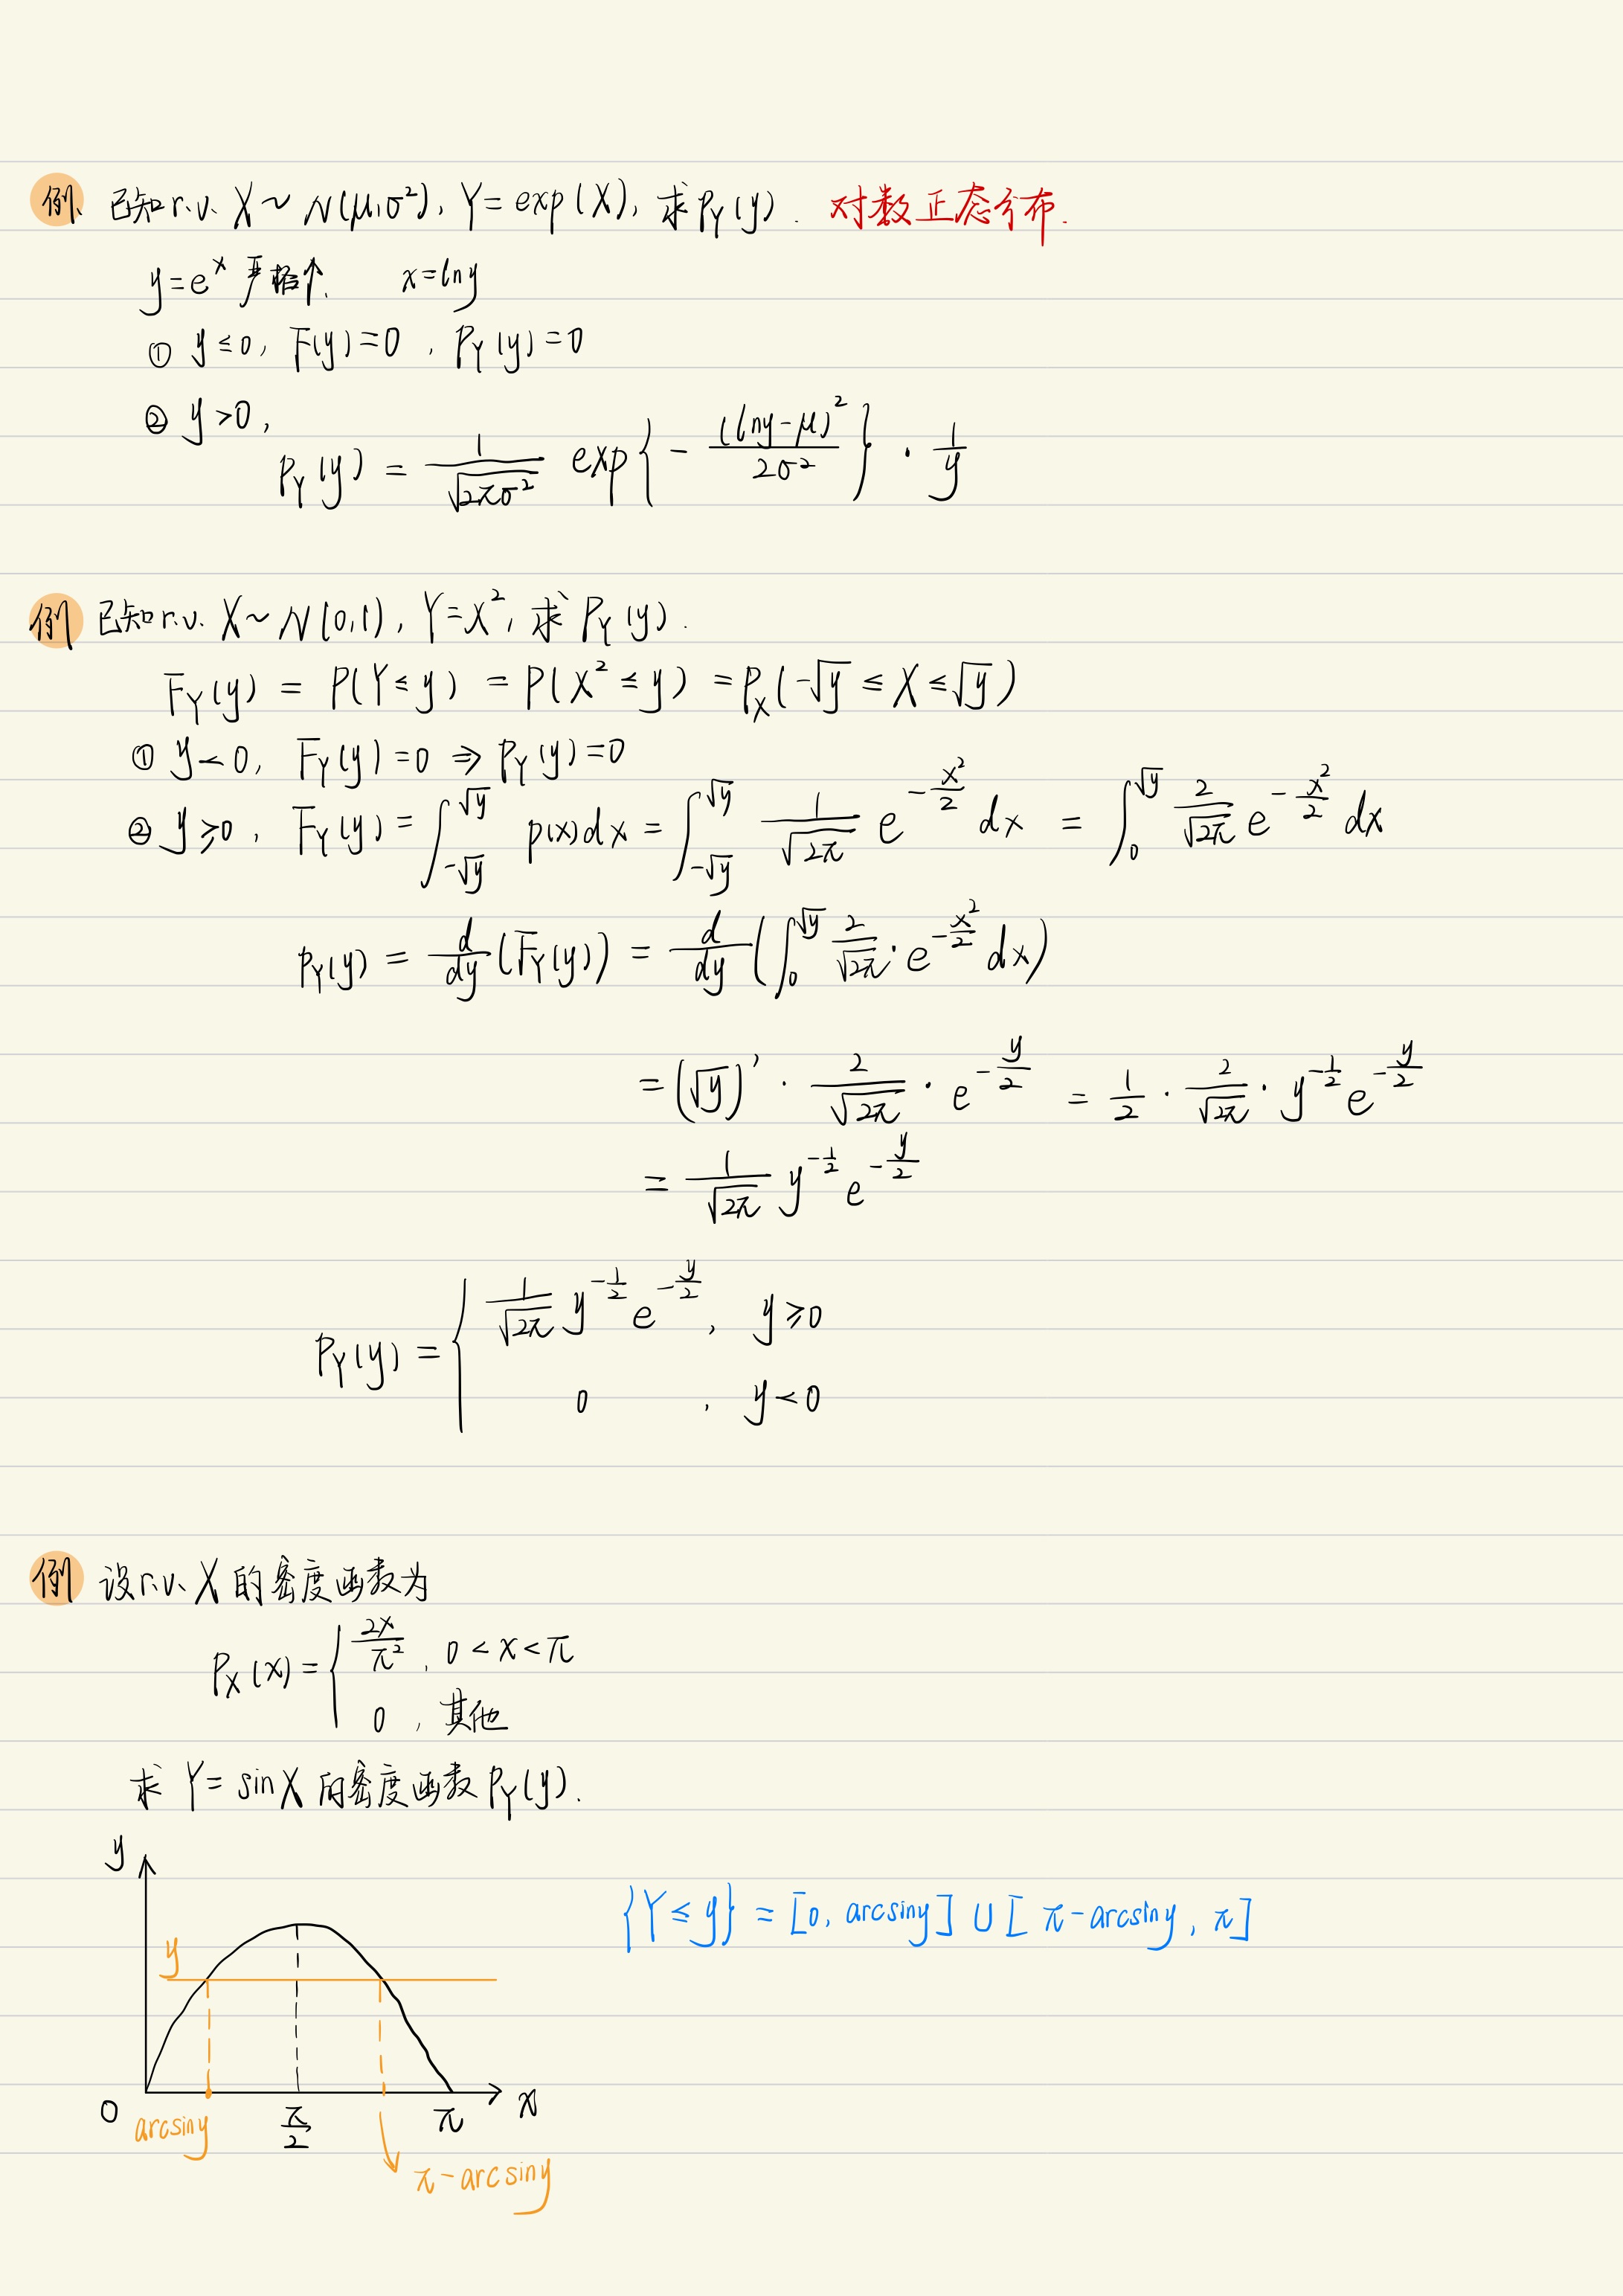 例. 已知r.v. X ~ N(μ,σ²), Y = exp(X), 求 P_Y(y). 对数正态分布.
y = e^x 严格↑. x = lny
① y ≤ 0, F(y) = 0 , P_Y(y) = 0
② y > 0,
P_Y(y) = \frac{1}{\sqrt{2πσ²}} exp{ - \frac{(lny-μ)²}{2σ²} } · \frac{1}{y}
例 已知r.v. X ~ N(0,1), Y = X², 求 P_Y(y).
F_Y(y) = P(Y ≤ y) = P(X² ≤ y) = P_X(-√y ≤ X ≤ √y)
① y < 0, F_Y(y) = 0 ⇒ P_Y(y) = 0
② y ≥ 0, F_Y(y) = ∫_{-√y}^{√y} p(x)dx = ∫_{-√y}^{√y} \frac{1}{\sqrt{2π}} e^{-\frac{x²}{2}} dx = ∫_0^{√y} \frac{2}{\sqrt{2π}} e^{-\frac{x²}{2}} dx
P_Y(y) = \frac{d}{dy}(F_Y(y)) = \frac{d}{dy}(∫_0^{√y} \frac{2}{\sqrt{2π}} · e^{-\frac{x²}{2}} dx)
= (√y)' · \frac{2}{\sqrt{2π}} · e^{-\frac{y}{2}} = \frac{1}{2} · \frac{2}{\sqrt{2π}} · y^{-\frac{1}{2}} e^{-\frac{y}{2}}
= \frac{1}{\sqrt{2π}} y^{-\frac{1}{2}} e^{-\frac{y}{2}}
P_Y(y) = { \frac{1}{\sqrt{2π}} y^{-\frac{1}{2}} e^{-\frac{y}{2}}, y ≥ 0
0 , y < 0
例 设r.v. X 的密度函数为
P_X(x) = { \frac{2x}{π²}, 0 < x < π
0 , 其他
求 Y = sinX 的密度函数 P_Y(y).
y
{Y ≤ y} = [0, arcsiny] ∪ [π-arcsiny, π]
y
0 arcsiny \frac{π}{2} π x
π-arcsiny